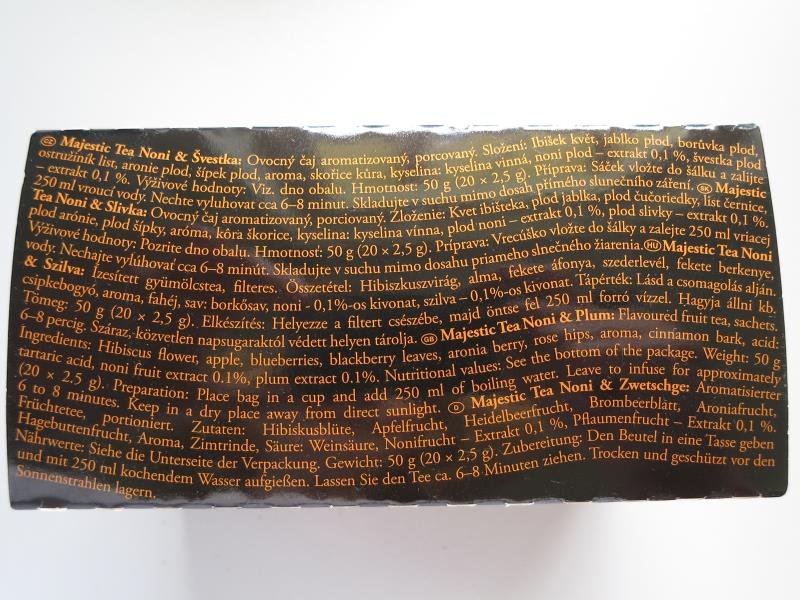 CZ Majestic Tea Noni & Švestka: Ovocný čaj aromatizovaný, porcovaný. Složení: Ibišek květ, jablko plod, borůvka plod,
ostružiník list, aronie plod, šípek plod, aroma, skořice kůra, kyselina: kyselina vinná, noni plod – extrakt 0,1 %, švestka plod
– extrakt 0,1 %. Výživové hodnoty: Viz. dno obalu. Hmotnost: 50 g (20 × 2,5 g). Příprava: Sáček vložte do šálku a zalijte
250 ml vroucí vody. Nechte vyluhovat cca 6–8 minut. Skladujte v suchu mimo dosah přímého slunečního záření. SK Majestic
Tea Noni & Slivka: Ovocný čaj aromatizovaný, porciovaný. Zloženie: Kvet ibišteka, plod jablka, plod čučoriedky, list černice,
plod arónie, plod šípky, aróma, kôra škorice, kyselina: kyselina vínna, plod noni – extrakt 0,1 %, plod slivky – extrakt 0,1 %.
Výživové hodnoty: Pozrite dno obalu. Hmotnosť: 50 g (20 × 2,5 g). Príprava: Vrecúško vložte do šálky a zalejte 250 ml vriacej
vody. Nechajte vylúhovať cca 6–8 minút. Skladujte v suchu mimo dosahu priameho slnečného žiarenia. HU Majestic Tea Noni
& Szilva: Ízesített gyümölcstea, filteres. Összetétel: Hibiszkuszvirág, alma, fekete áfonya, szederlevél, fekete berkenye,
csipkebogyó, aroma, fahéj, sav: borkősav, noni - 0,1%-os kivonat, szilva – 0,1%-os kivonat. Tápérték: Lásd a csomagolás alján.
Tömeg: 50 g (20 × 2,5 g). Elkészítés: Helyezze a filtert csészébe, majd öntse fel 250 ml forró vízzel. Hagyja állni kb.
6–8 percig. Száraz, közvetlen napsugaraktól védett helyen tárolja. GB Majestic Tea Noni & Plum: Flavoured fruit tea, sachets.
Ingredients: Hibiscus flower, apple, blueberries, blackberry leaves, aronia berry, rose hips, aroma, cinnamon bark, acid:
tartaric acid, noni fruit extract 0.1%, plum extract 0.1%. Nutritional values: See the bottom of the package. Weight: 50 g
(20 × 2.5 g). Preparation: Place bag in a cup and add 250 ml of boiling water. Leave to infuse for approximately
6 to 8 minutes. Keep in a dry place away from direct sunlight. D Majestic Tea Noni & Zwetschge: Aromatisierter
Früchtetee, portioniert. Zutaten: Hibiskusblüte, Apfelfrucht, Heidelbeerfrucht, Brombeerblatt, Aroniafrucht,
Hagebuttenfrucht, Aroma, Zimtrinde, Säure: Weinsäure, Nonifrucht – Extrakt 0,1 %, Pflaumenfrucht – Extrakt 0,1 %.
Nährwerte: Siehe die Unterseite der Verpackung. Gewicht: 50 g (20 × 2,5 g). Zubereitung: Den Beutel in eine Tasse geben
und mit 250 ml kochendem Wasser aufgießen. Lassen Sie den Tee ca. 6–8 Minuten ziehen. Trocken und geschützt vor den
Sonnenstrahlen lagern.